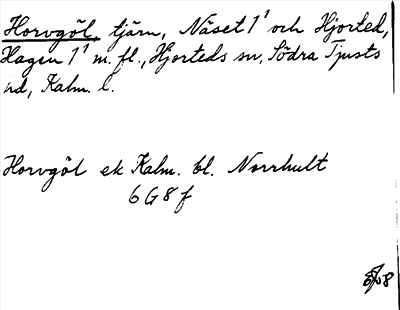 Horvgöl, tjärn, Näset 1¹ och Hjorted,
Hagen 1¹ m. fl., Hjorteds sn, Södra Tjusts
hd, Kalm. l.
Horvgöl ek Kalm. bl. Norrhult
6 G 8 f